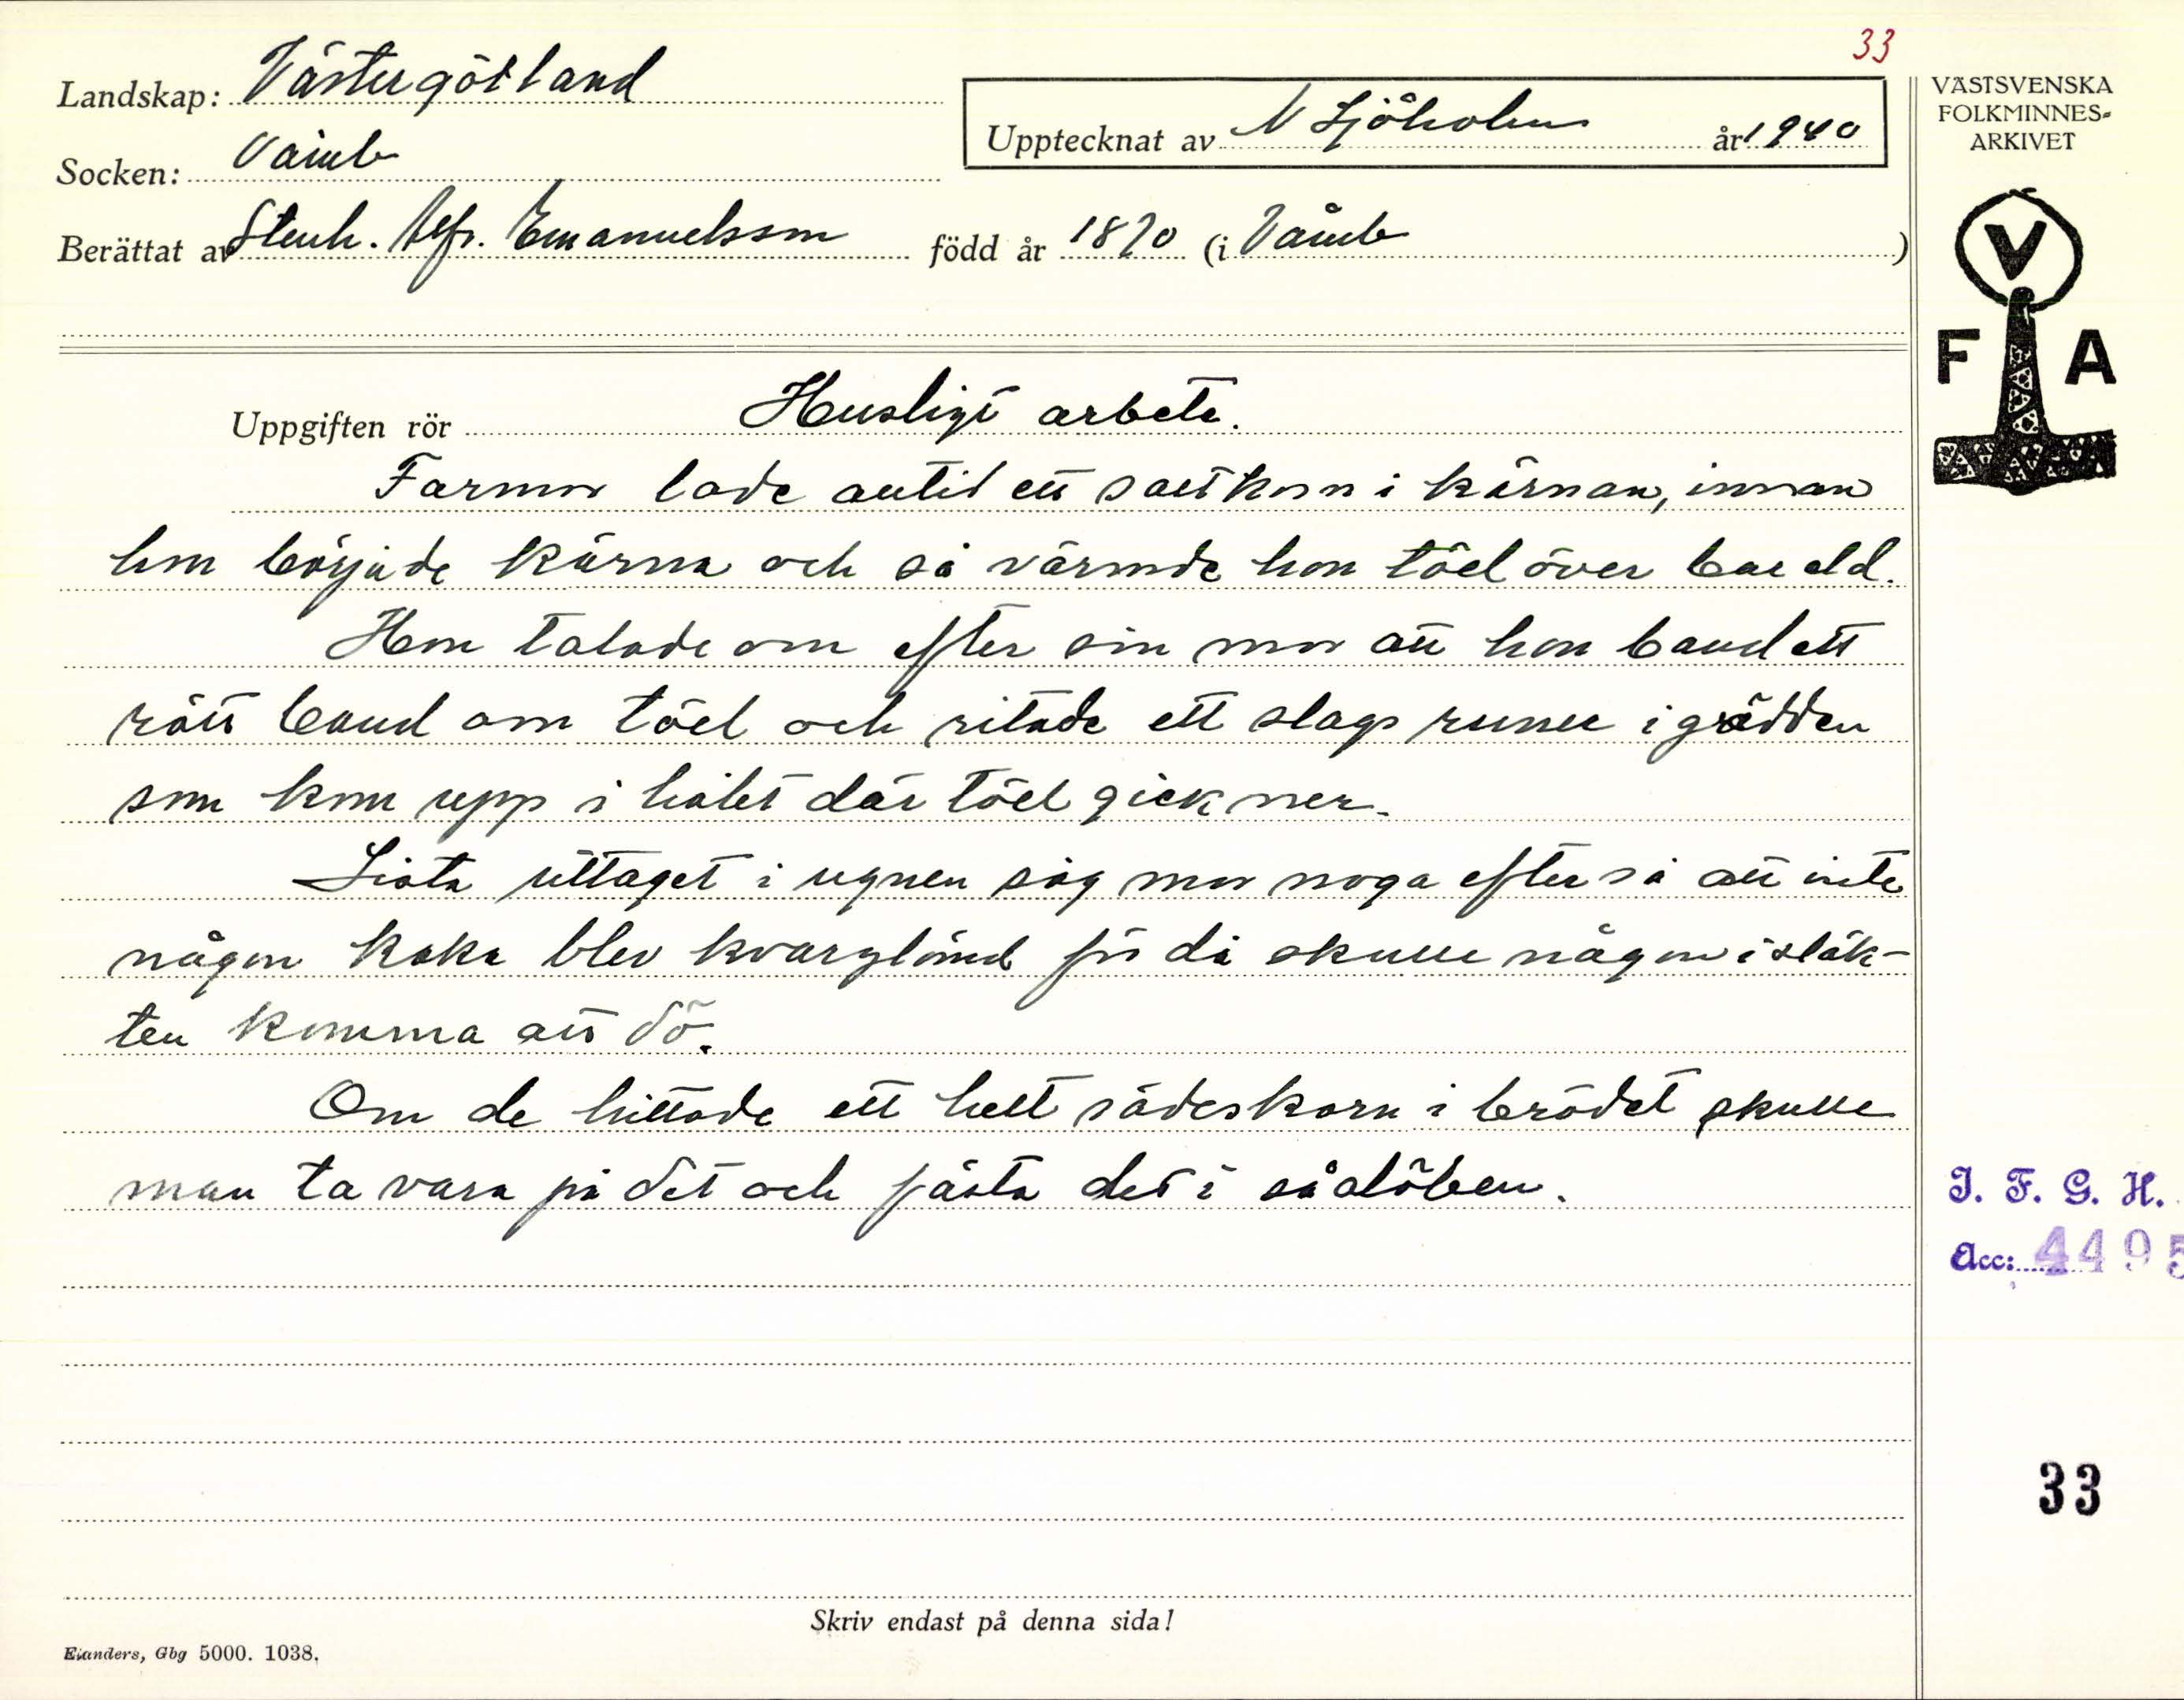 33
Landskap: Västergötland
Upptecknat av N Sjöholm år 1940
Socken: Våmb
Berättat av Stenh. Alfr. Emanuelsson född år 1870 (i Våmb)
VÄSTSVENSKA
FOLKMINNES-
ARKIVET
V
F A
Uppgiften rör Husligt arbete.
Farmor lade alltid ett saltkorn i kärnan, innan
hon började kärna och så värmde hon töel över bar eld.
Hon talade om efter sin mor att hon band ett
rött band om töel och ritade ett slags runor i grädden
som kom upp i hålet där töel gick ner.
Sista uttaget i ugnen såg mor noga efter så att inte
någon kaka blev kvarglömd för då skulle någon i släk-
ten komma att dö.
Om de hittade ett helt sädeskorn i brödet skulle
man ta vara på det och fästa det i sålöben.
I. F. G. H.
Acc: 4495
33
Skriv endast på denna sida!
Elanders, Gbg 5000. 1038.